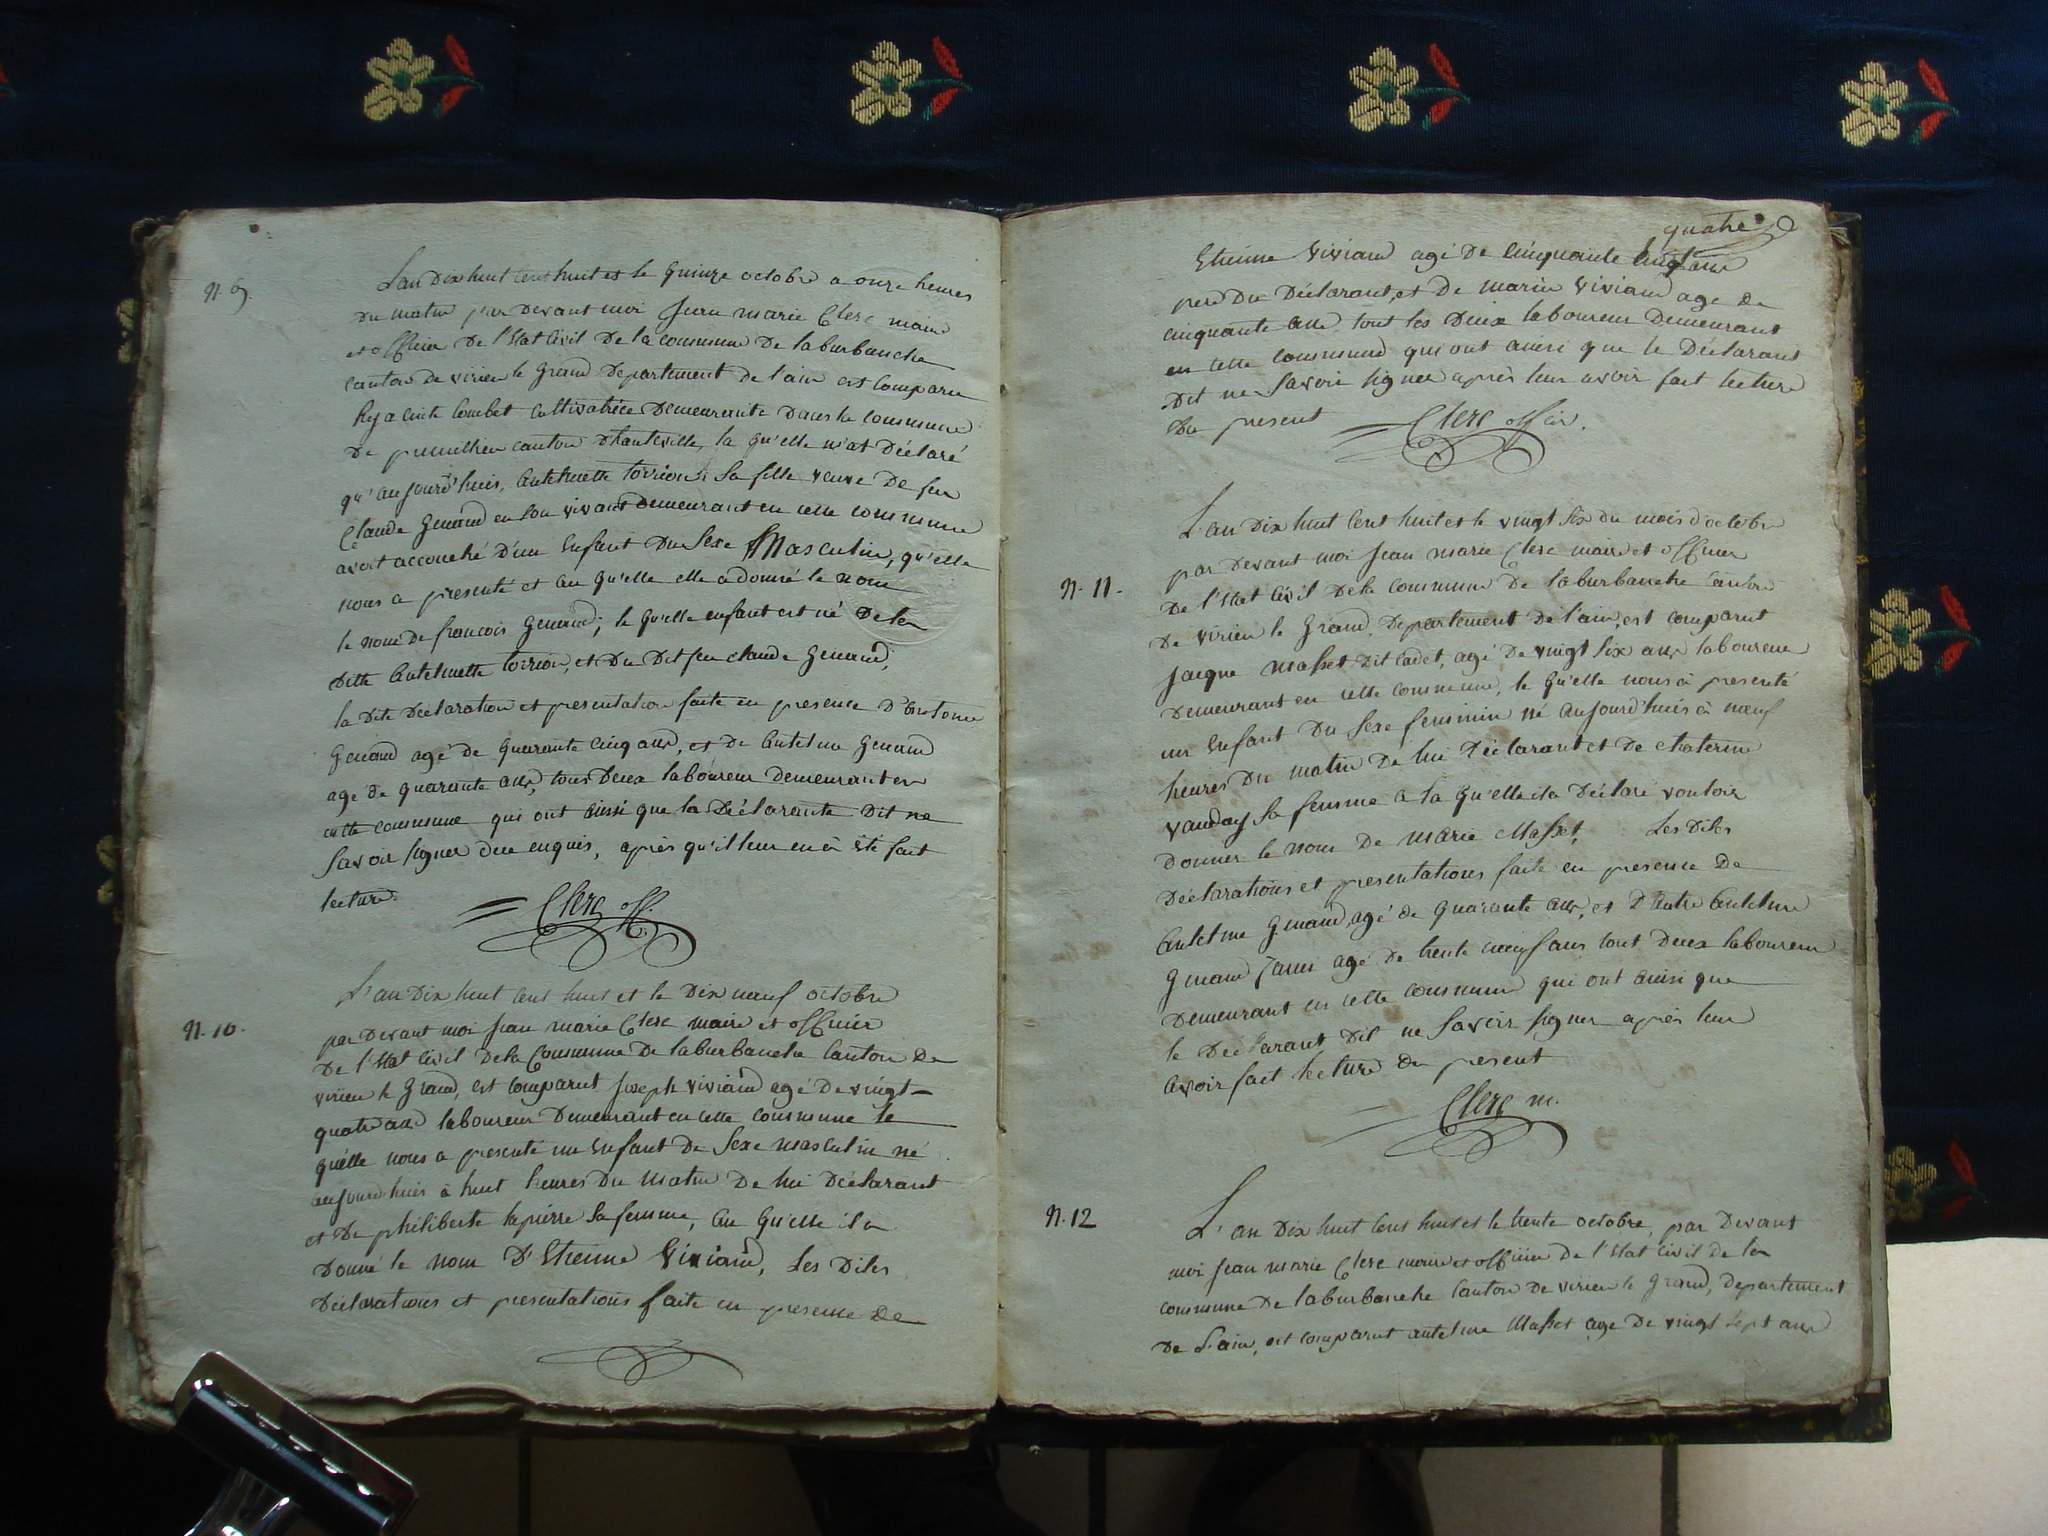 N. 9.
L'an Dix huit cent huit et le quinze octobre a onze heures
du matin par Devant moi Jean marie Clerc maire
et officier De l'Etat Civil De la commune De laburbanche
canton de virieu le Grand Departement de l'ain est comparu
hyacinte Combet Cultivatrice Demeurante Dans la commune
De premillieu canton D'hauteville, la qu'elle m'at Déclaré
qu'aujourd'huis, Antelmette torrion sa fille veuve De feu
Claude Genaud en son vivant Demeurant en cette commune
avoit accouché d'un Enfant Du Sexe Masculin, qu'elle
nous a presenté et au qu'elle elle a donné le nom
le nom De francois Genaud; le qu'elle enfant est né De la
Ditte Antelmette torrion, et Du Dit feu claude Genaud;
la Dite Declaration et presentation faite en presence D'antoine
Genaud agé de quarante cinq ans, et De Antelme Genaud
agé de quarante ans, tous Deux laboureur Demeurant en
cette commune qui ont ainsi que la Déclarante Dit ne
Savoir signer De ce enquis, après qu'il leur en à été fait
lecture.
Clerc off.
N. 10.
L'an Dix huit cent huit et le Dix neuf octobre
par Devant moi Jean marie Clerc maire et officier
De l'Etat Civil De la Commune De laburbanche Canton De
virieu le Grand, est comparut Joseph Viviand agé De vingt
quatre ans laboureur Demeurant en cette commune le
qu'elle nous a presenté un Enfant De Sexe masculin né
aujourd'huis à huit heures Du matin De lui Déclarant
et De philiberte lapierre Sa femme, au qu'elle il a
Donné le nom D'Etienne Viviand, Les Dites
Declarations et presentations faite en presence De
quatre
Etienne Viviand agé De Cinquante Cinq ans
pere Du Déclarant, et De marin Viviand age De
cinquante ans tout les Deux laboureur Demeurant
en cette commune qui ont ainsi que le Déclarant
Dit ne Savoir signer après leur avoir fait lecture
Du present
Clerc off
N. 11.
L'an Dix huit Cent huit et le vingt six du mois d'octobre
par Devant moi Jean marie Clerc maire et officier
De l'Etat Civil De la commune De laburbanche Canton
De Virieu le Grand, Departement De l'ain, est comparut
Jacque Masset Dit Cadet, agé De vingt Six ans laboureur
Demeurant en cette commune, le qu'elle nous à presenté
un Enfant Du Sexe feminin né aujourd'huis à neuf
heures Du matin De lui Déclarant et De chaterine
Sa femme a la qu'elle il a Déclaré vouloir
Donner le nom De Marie Masset, Les Dites
Déclarations et presentations faite en presence De
Antelme Genaud, agé De quarante ans, et D'autre Antelme
Genaud agé De trente neuf ans tout Deux laboureur
Demeurant en cette commune qui ont ainsi que
le Declarant Dit ne Savoir signer après leur
avoir fait lecture du present
Clerc m.
N. 12
L'an Dix huit Cent huit et le trente octobre, par Devant
moi Jean marie Clerc maire et officier De l'Etat Civil De la
commune De laburbanche Canton De virieu le Grand, Departement
De L'ain, est comparut antelme Masset age De vingt Sept ans